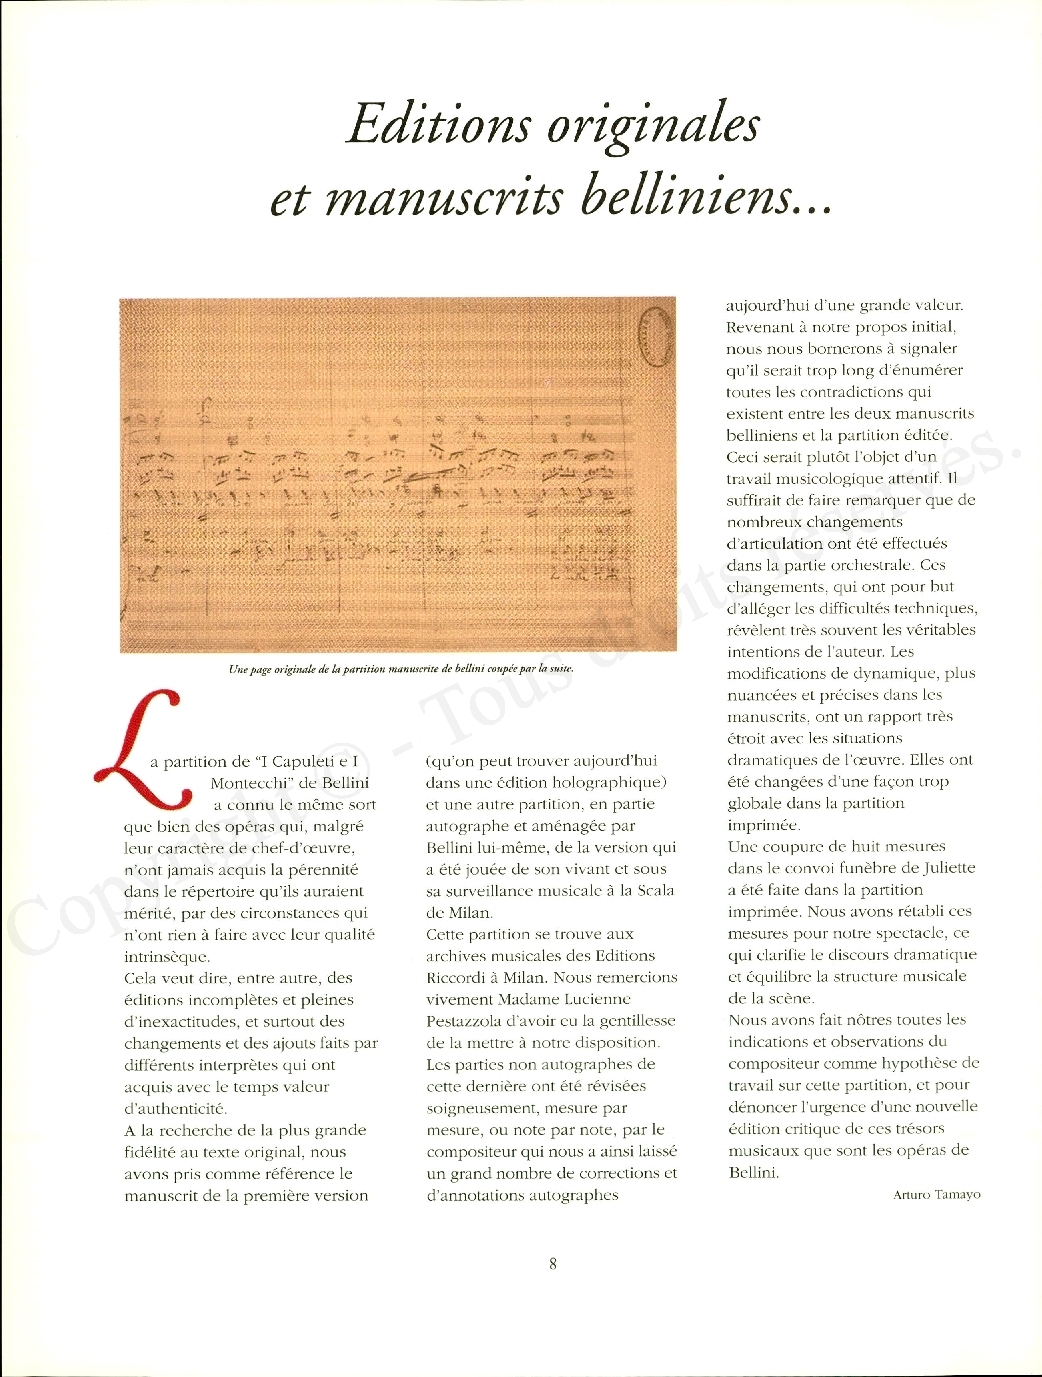 Editions originales
et manuscrits belliniens...
Une page originale de la partition manuscrite de bellini coupée par la suite.
La partition de “I Capuleti e I
Montecchi” de Bellini
a connu le même sort
que bien des opéras qui, malgré
leur caractère de chef-d'œuvre,
n'ont jamais acquis la pérennité
dans le répertoire qu'ils auraient
mérité, par des circonstances qui
n'ont rien à faire avec leur qualité
intrinsèque.
Cela veut dire, entre autre, des
éditions incomplètes et pleines
d'inexactitudes, et surtout des
changements et des ajouts faits par
différents interprètes qui ont
acquis avec le temps valeur
d'authenticité.
A la recherche de la plus grande
fidélité au texte original, nous
avons pris comme référence le
manuscrit de la première version
(qu'on peut trouver aujourd'hui
dans une édition holographique)
et une autre partition, en partie
autographe et aménagée par
Bellini lui-même, de la version qui
a été jouée de son vivant et sous
sa surveillance musicale à la Scala
de Milan.
Cette partition se trouve aux
archives musicales des Editions
Riccordi à Milan. Nous remercions
vivement Madame Lucienne
Pestazzola d'avoir eu la gentillesse
de la mettre à notre disposition.
Les parties non autographes de
cette dernière ont été révisées
soigneusement, mesure par
mesure, ou note par note, par le
compositeur qui nous a ainsi laissé
un grand nombre de corrections et
d'annotations autographes
aujourd'hui d'une grande valeur.
Revenant à notre propos initial,
nous nous bornerons à signaler
qu'il serait trop long d'énumérer
toutes les contradictions qui
existent entre les deux manuscrits
belliniens et la partition éditée.
Ceci serait plutôt l'objet d'un
travail musicologique attentif. Il
suffirait de faire remarquer que de
nombreux changements
d'articulation ont été effectués
dans la partie orchestrale. Ces
changements, qui ont pour but
d'alléger les difficultés techniques,
révèlent très souvent les véritables
intentions de l'auteur. Les
modifications de dynamique, plus
nuancées et précises dans les
manuscrits, ont un rapport très
étroit avec les situations
dramatiques de l'œuvre. Elles ont
été changées d'une façon trop
globale dans la partition
imprimée.
Une coupure de huit mesures
dans le convoi funèbre de Juliette
a été faite dans la partition
imprimée. Nous avons rétabli ces
mesures pour notre spectacle, ce
qui clarifie le discours dramatique
et équilibre la structure musicale
de la scène.
Nous avons fait nôtres toutes les
indications et observations du
compositeur comme hypothèse de
travail sur cette partition, et pour
dénoncer l'urgence d'une nouvelle
édition critique de ces trésors
musicaux que sont les opéras de
Bellini.
Arturo Tamayo
8
Copyright © - Tous droits réservés.